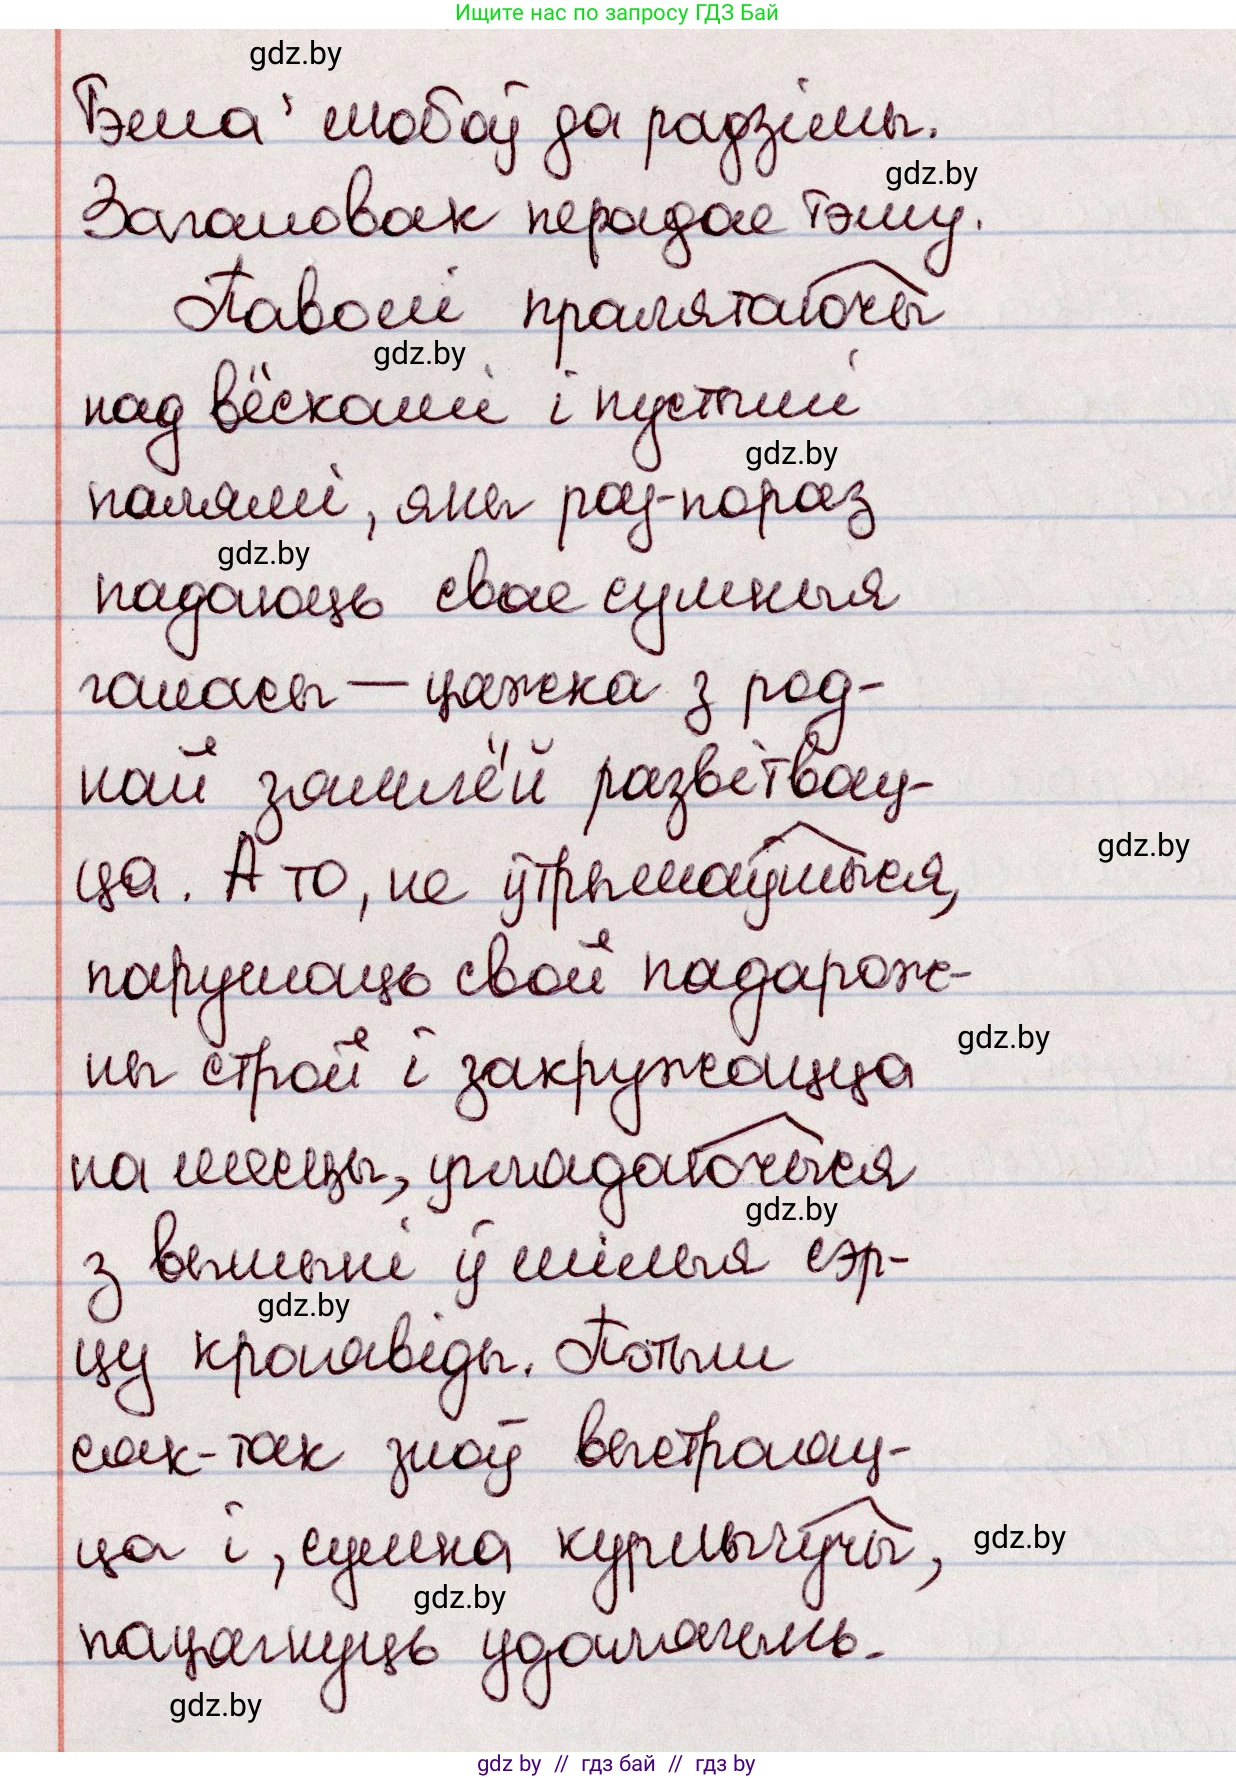 Ищите нас по запросу ГДЗ Бай
gdz.by
Тэма: любоў да радзімы.
gdz.by
Загаловак перадае тэму.
Паволі пралятаючы
gdz.by
над вёскамі і пустымі
gdz.by
палямі, яны раз-пораз
gdz.by
падаюць свае сумныя
галасы — цяжка з род-
най зямлёй развітвац-
ца. А то, не ўтрымаўшыся,
gdz.by
парушаць свой падарож-
ны строй і закружацца
gdz.by
на месцы, углядаючыся
gdz.by
з вышыні ў мілыя сэр-
gdz.by
цу краявіды. Потым
сяк-так зноў выстраяц-
ца і, сумна курлычучы,
gdz.by
gdz.by
пацягнуць удалячынь.
gdz.by
gdz by // гдз бай // гдз by